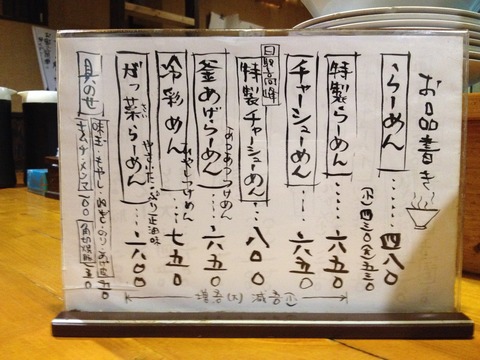 お品書き
らーめん……四八〇
(小)四三〇(大)五三〇
特製らーめん……六五〇
チャーシューめん……六五〇
日製高峰
特製チャーシューめん…八〇〇
釜あげらーめん…六五〇
あつあつつけめん
冷彩めん……七五〇
ひやしつけめん
だっ菜らーめん……六八〇
やさいたっぷり正油味
増⊕(大) 減⊕(小)
具のせ
味玉・もやし・ねぎ・のり・あげ玉 五〇
キムチ・メンマ 一〇〇